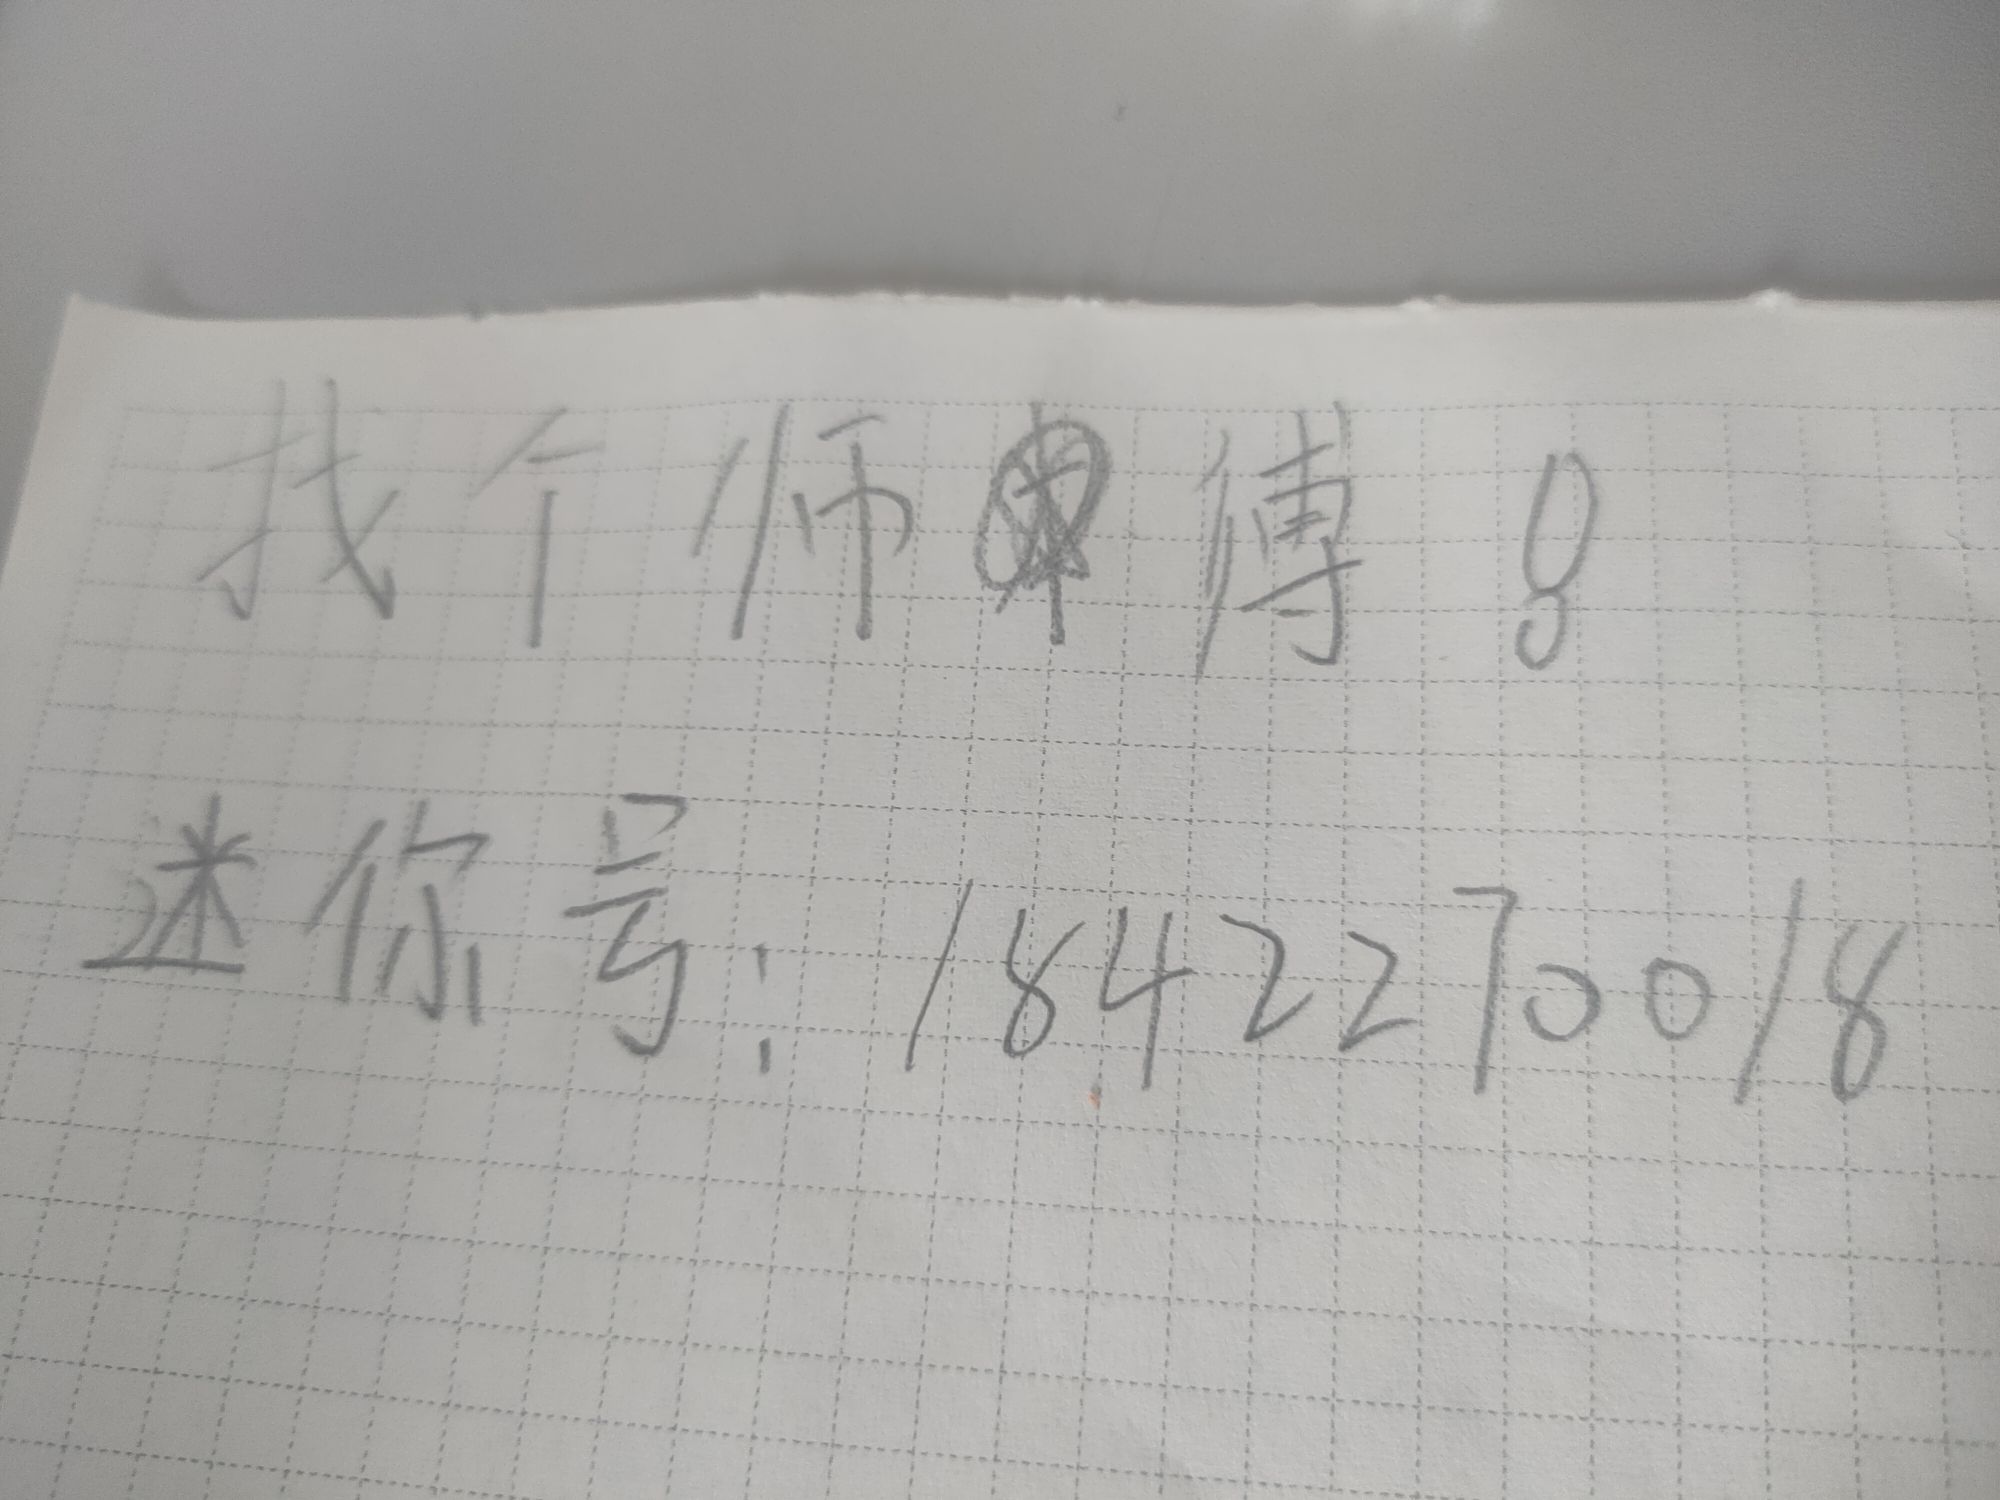 找个师傅!
迷你号：1842270018